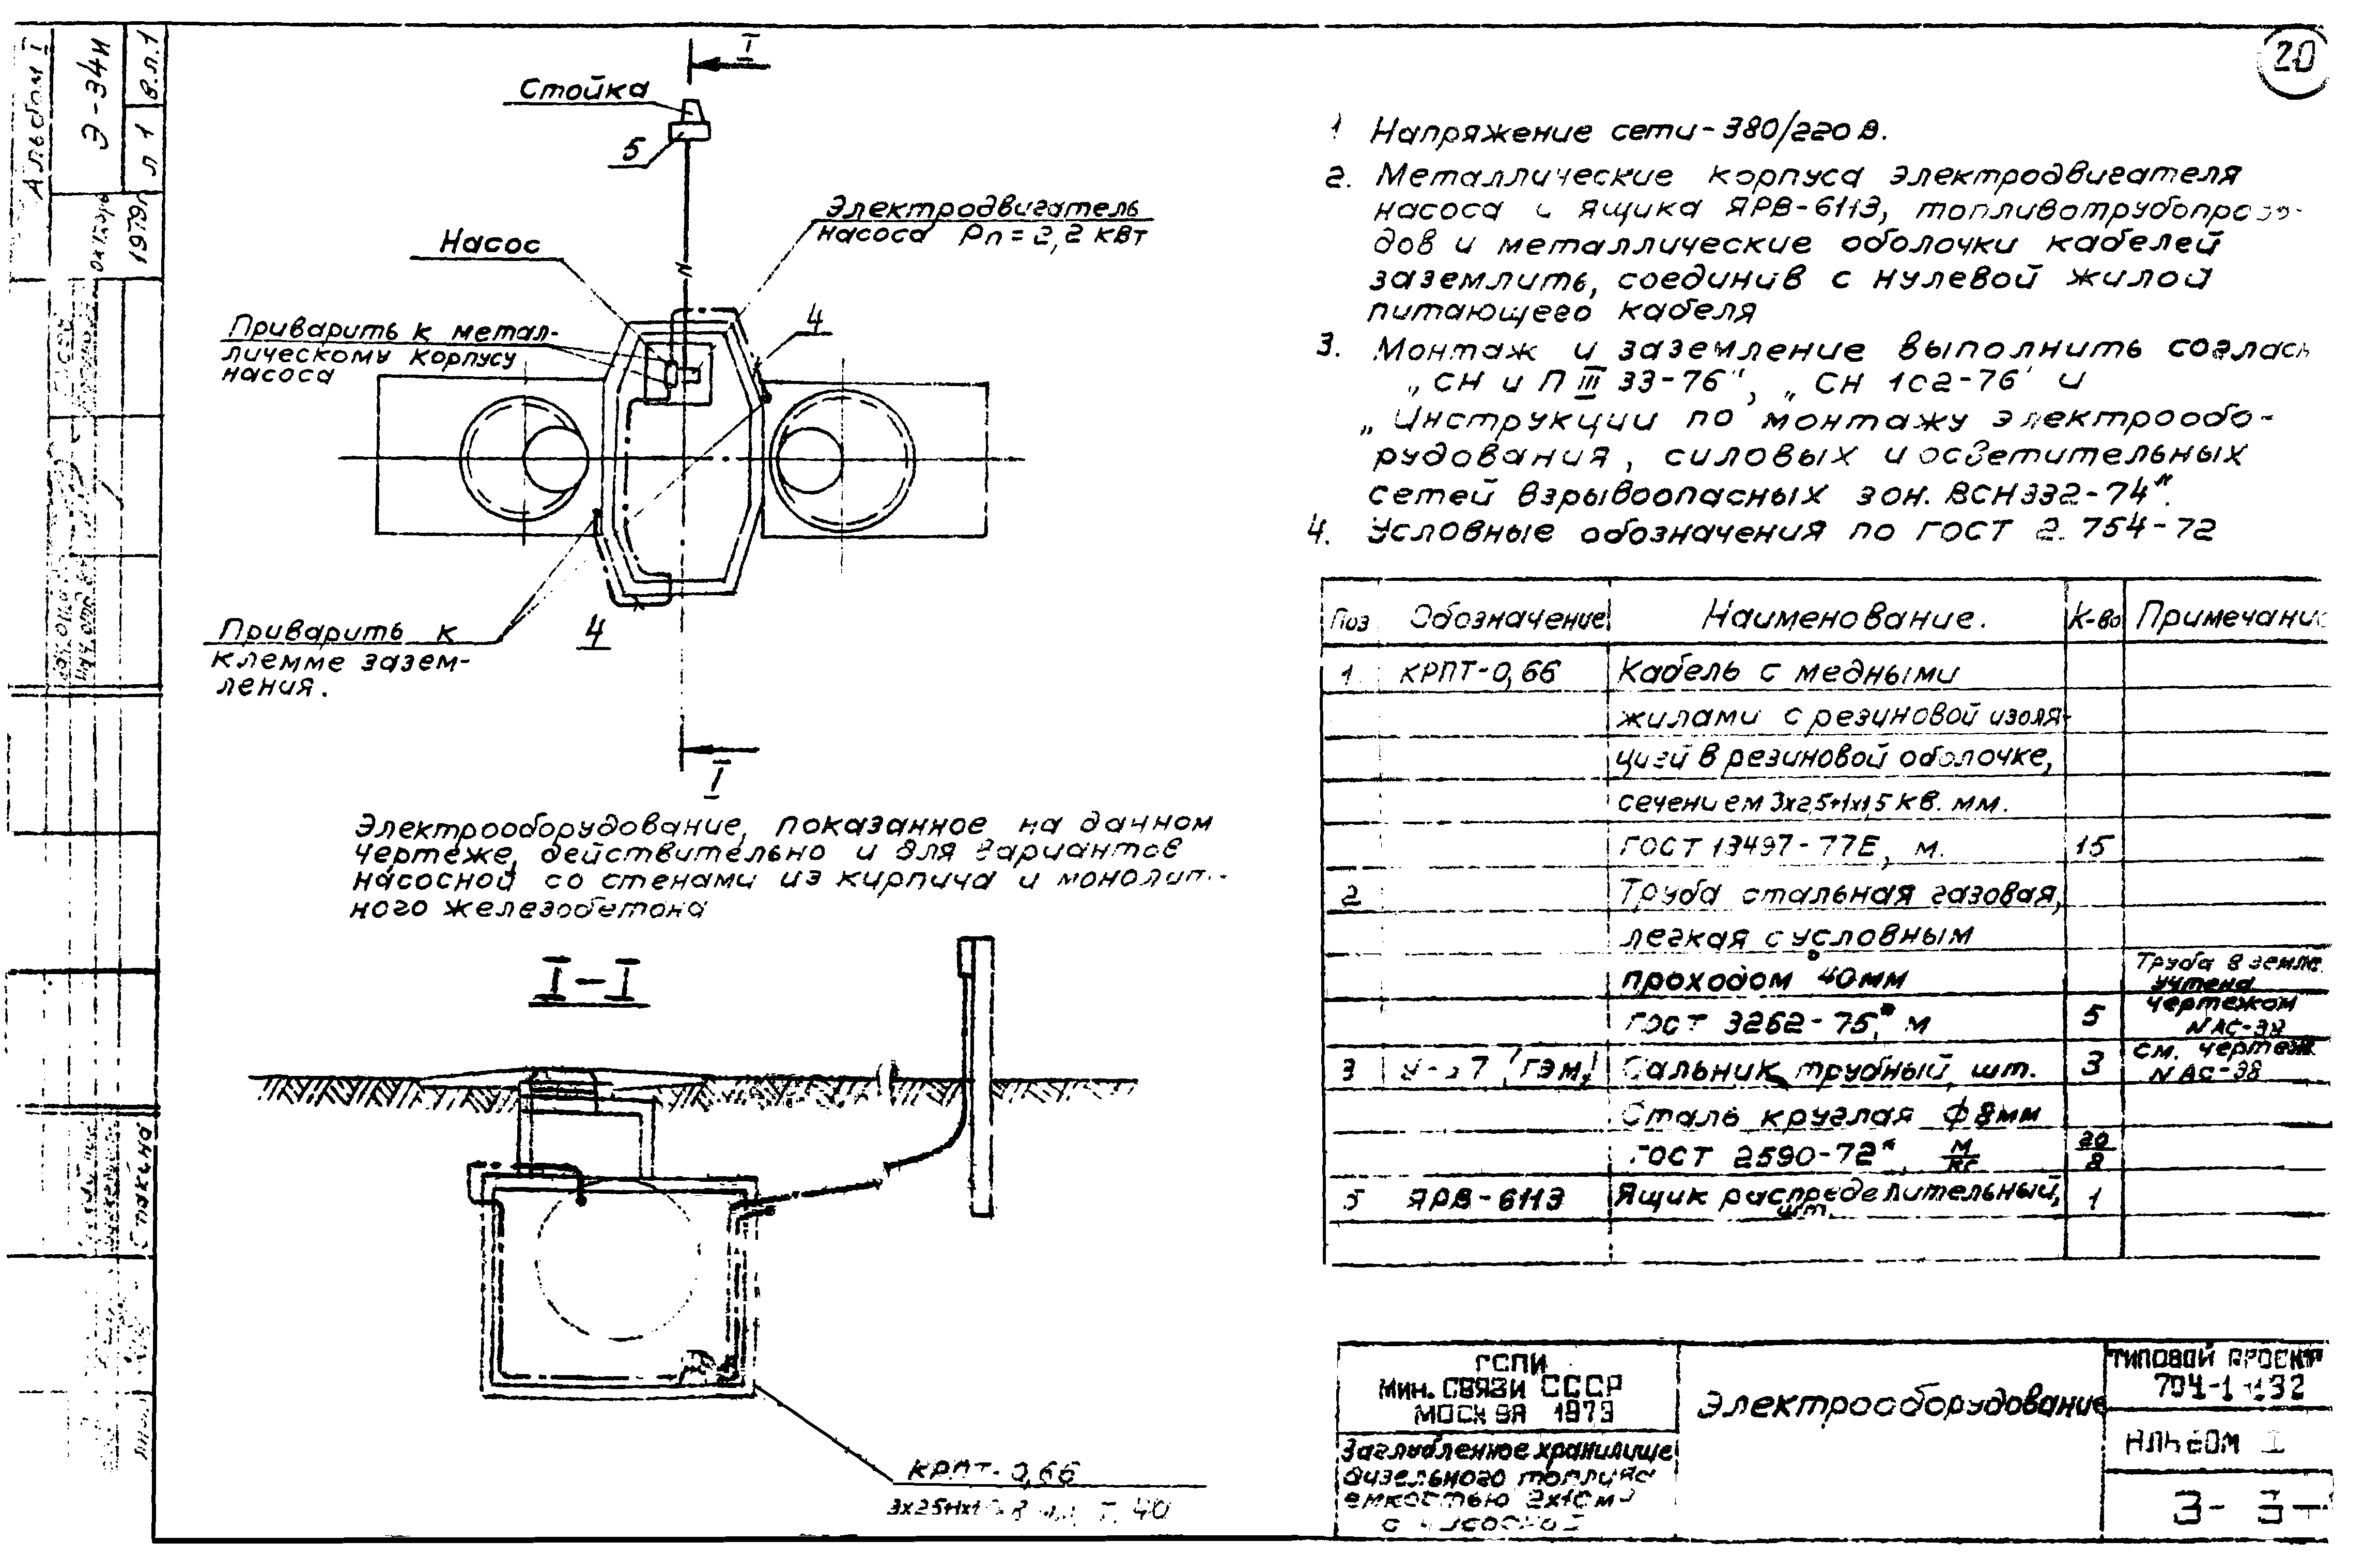 Альбом I
Э-34И
л 1
в.л.1
1979г
20
I
Стойка
5
Электродвигатель
насоса Рп = 2,2 кВт
Насос
4
Приварить к метал-
лическому корпусу
насоса
Приварить к
клемме зазем-
ления.
4
I
Электрооборудование, показанное на данном
чертеже, действительно и для вариантов
насосной со стенами из кирпича и монолит-
ного железобетона
I-I
КРПТ-0,66
40
1 Напряжение сети-380/220В.
2. Металлические корпуса электродвигателя
насоса и ящика ЯРВ-6113,
дов и металлические оболочки кабелей
заземлить, соединив с нулевой жилой
питающего кабеля
3. Монтаж и заземление выполнить соглас
„СН и П III 33-76", „СН 102-76' и
„Инструкции по монтажу электрообо-
рудования, силовых и осветительных
сетей взрывоопасных зон. ВСН332-74".
4. Условные обозначения по ГОСТ 2.754-72
Поз Обозначение Наименование. К-во Примечание
1 КРПТ-0,66 Кабель с медными
жилами с резиновой изоля-
цией в резиновой оболочке,
сечением 3х2,5+1х1,5 кв. мм.
ГОСТ 13497-77Е, м. 15
2 Труба стальная газовая,
легкая с условным
проходом 40мм Труба в земле
учтена
ГОСТ 3262-75,* м 5 чертежом
N АС-38
3 (ГЭМ) Сальник трубный, шт. 3 см. чертеж
N АС-38
Сталь круглая ф 8мм
ГОСТ 2590-72* м/кг 20/8
5 ЯРВ-6113 Ящик распределительный, 1
шт.
ГСПИ
Мин. СВЯЗИ СССР
МОСКВА 1979
Заглубленное хранилище
дизельного топлива
емкостью 2х10м³
с насосной
Электрооборудование
ТИПОВОЙ ПРОЕКТ
704-1-132
Альбом I
Э-3-
Спакина